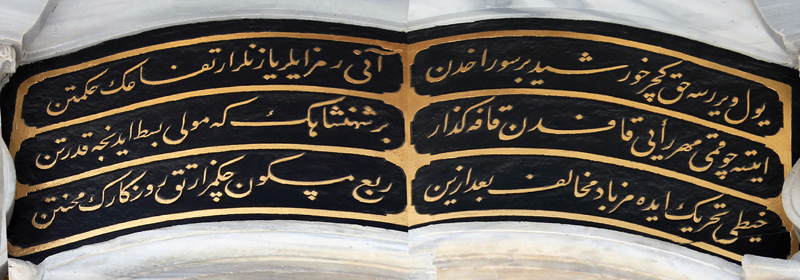 یول ویررسه حق کچر خورشید بر سوراخدن
آنی رمز ایلر یازنلر ارتفاعك حکمتن
ایتسه چوقمی مهر رأیی قافدن قافه کذار
بر شهنشاهك که مولی بسط ایدنجه قدرتن
خیطی تحریك ایده مز باد مخالف بعد ازین
ربع مسکون چکمز ارتق روزکارك محنتن